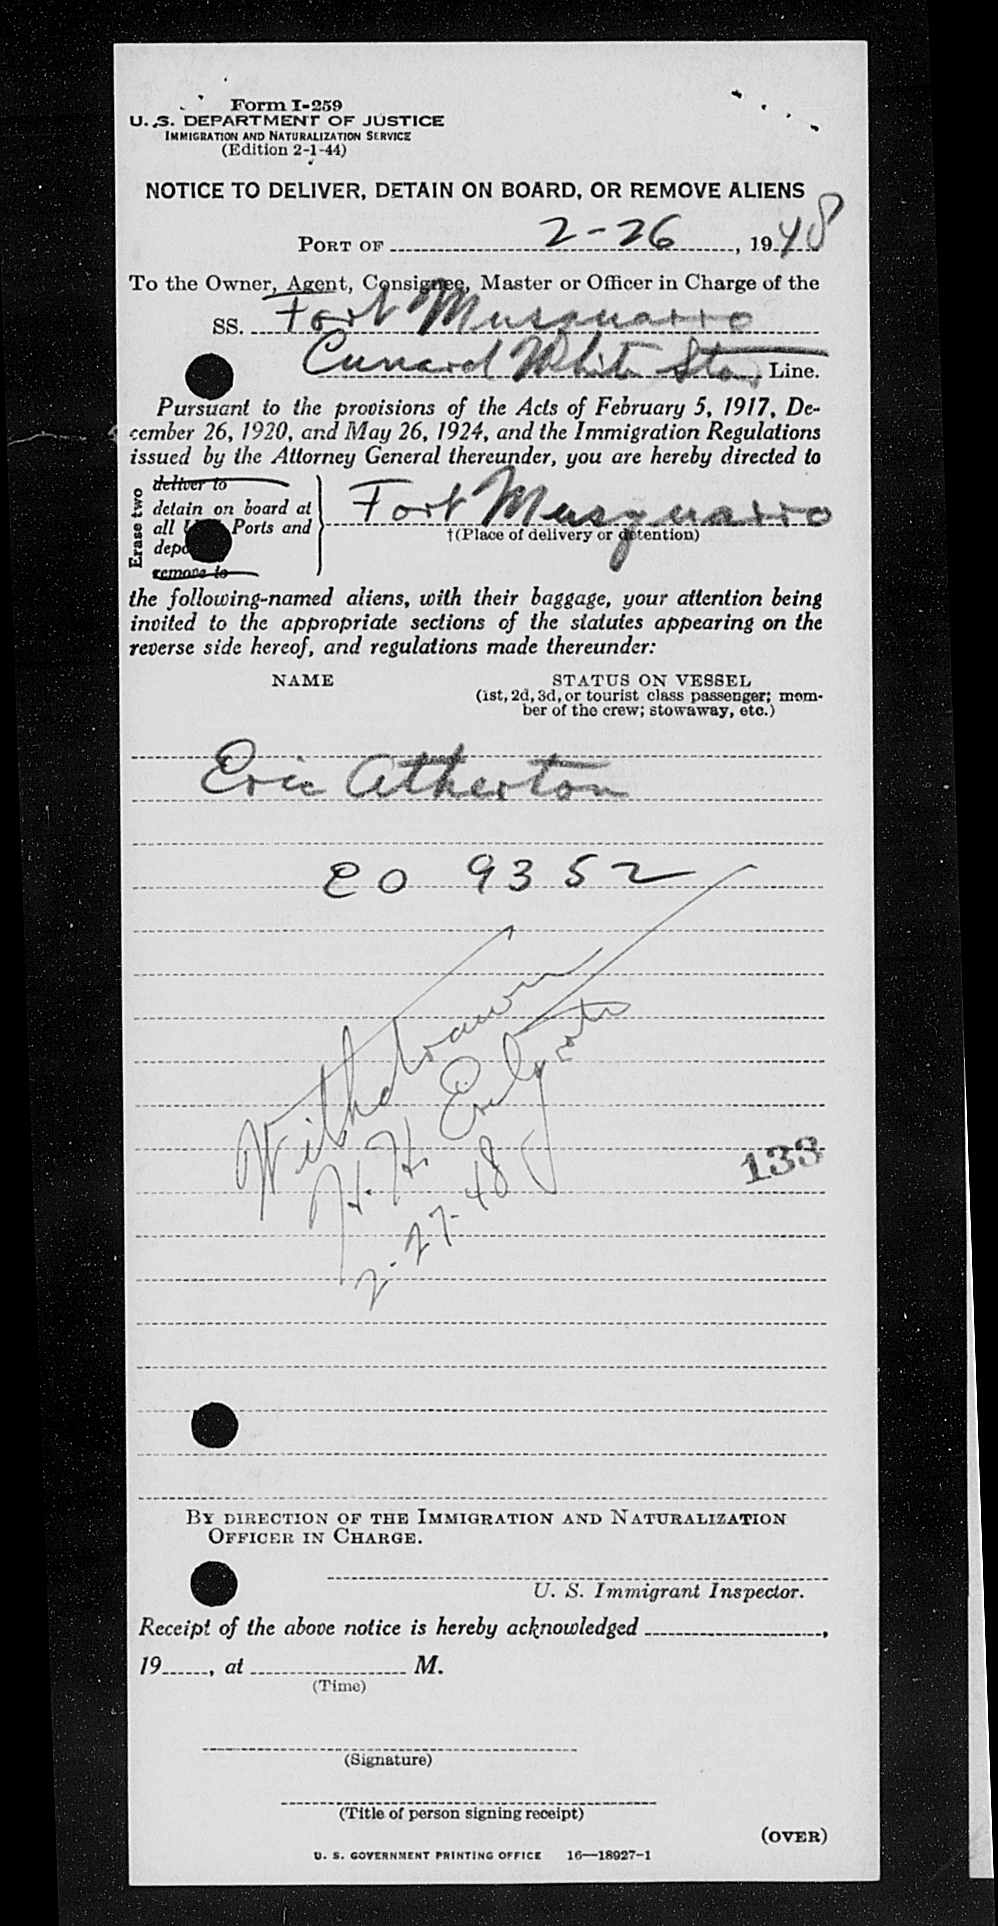 Form I-259
U. S. DEPARTMENT OF JUSTICE
IMMIGRATION AND NATURALIZATION SERVICE
(Edition 2-1-44)
NOTICE TO DELIVER, DETAIN ON BOARD, OR REMOVE ALIENS
PORT OF 2-26, 1948
To the Owner, Agent, Consignee, Master or Officer in Charge of the
SS. Fort Musquarro
Cunard White Star Line.
Pursuant to the provisions of the Acts of February 5, 1917, De-
cember 26, 1920, and May 26, 1924, and the Immigration Regulations
issued by the Attorney General thereunder, you are hereby directed to
Erase two
deliver to
detain on board at
all Ports and
remove to
Fort Musquarro
†(Place of delivery or detention)
the following-named aliens, with their baggage, your attention being
invited to the appropriate sections of the statutes appearing on the
reverse side hereof, and regulations made thereunder:
NAME STATUS ON VESSEL
(1st, 2d, 3d, or tourist class passenger; mem-
ber of the crew; stowaway, etc.)
Eric Atherton
EO 9352
Withdrawn
H. H.
2-27-48
133
BY DIRECTION OF THE IMMIGRATION AND NATURALIZATION
OFFICER IN CHARGE.
U. S. Immigrant Inspector.
Receipt of the above notice is hereby acknowledged ,
19 , at M.
(Time)
(Signature)
(Title of person signing receipt)
(OVER)
U. S. GOVERNMENT PRINTING OFFICE 16—18927-1